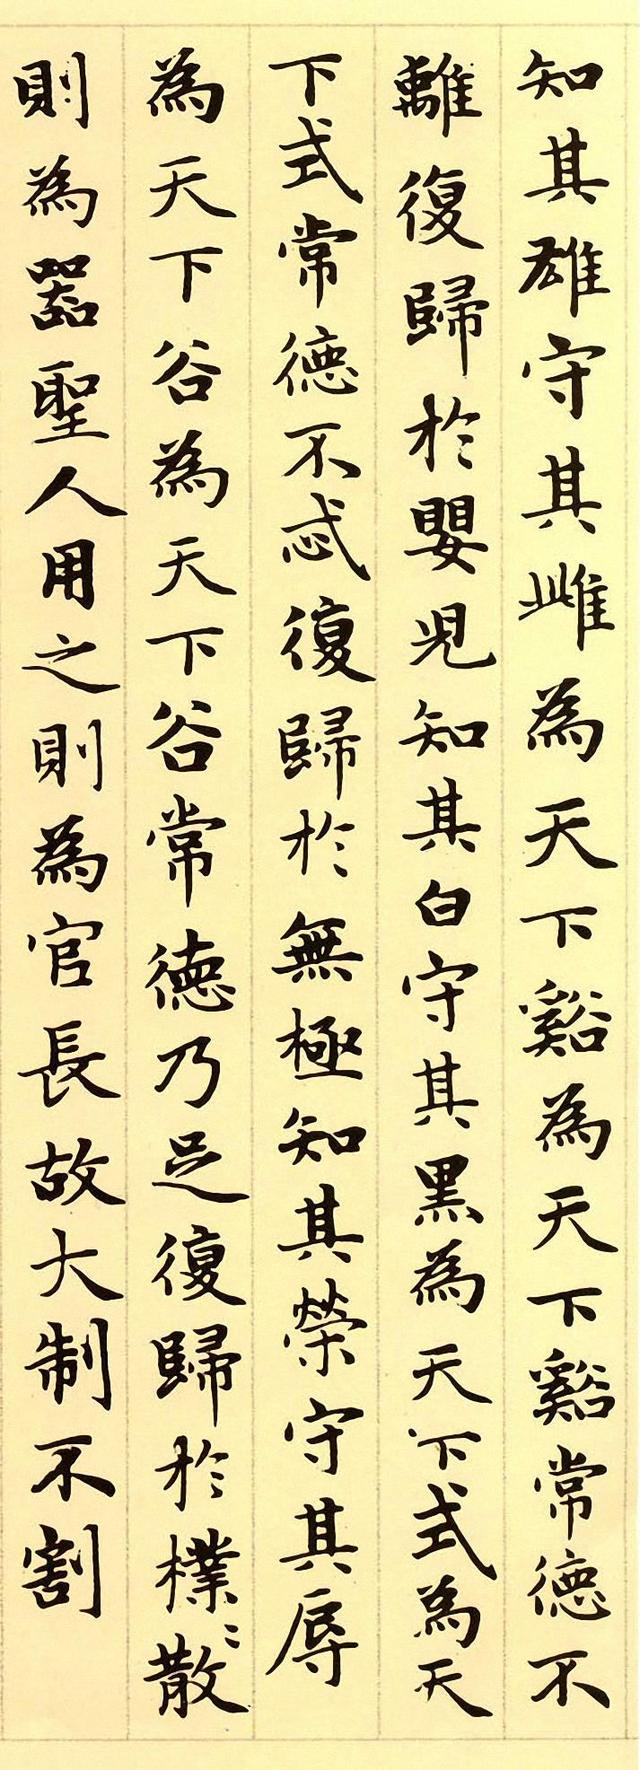 知其雄守其雌為天下谿為天下谿常德不
離復歸於嬰兒知其白守其黑為天下式為天
下式常德不忒復歸於無極知其榮守其辱
為天下谷為天下谷常德乃足復歸於樸〻散
則為器聖人用之則為官長故大制不割